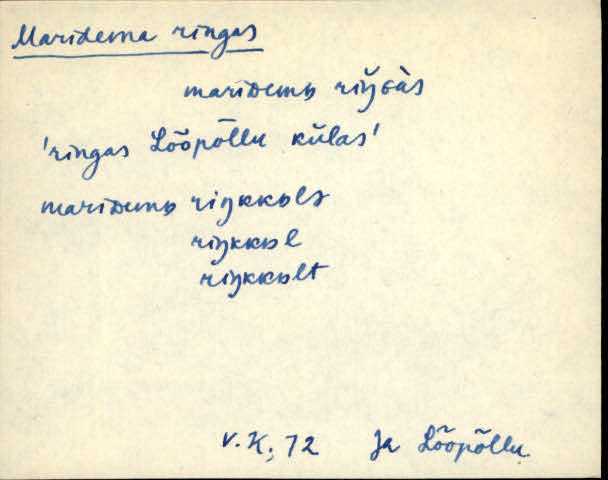 Maridema ringas
mariᴅemʙ riŋ̆ɢàs
'ringas Lõõpõllu külas'
mariᴅemʙ riŋkkʙlə
riŋkkʙl
riŋkkʙlt
V.K., 72 Ja Lõõpõllu